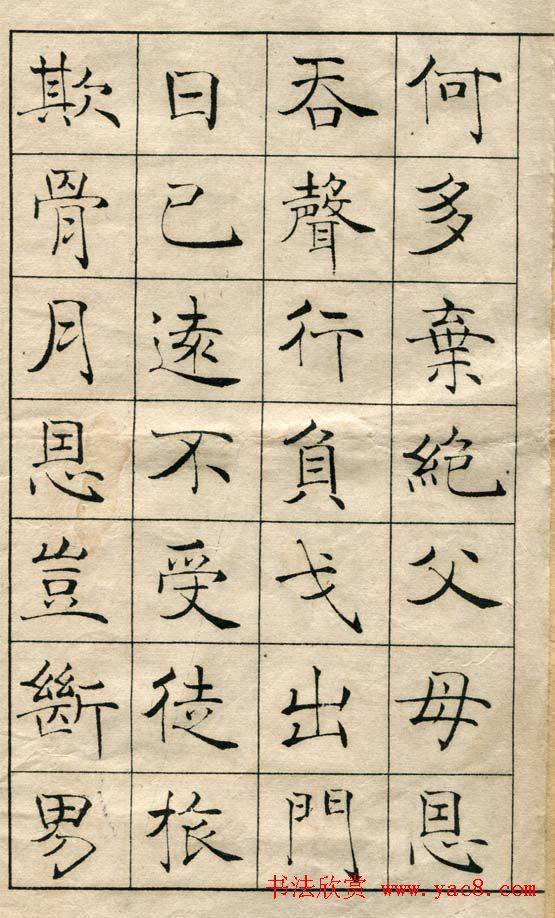 何多棄絕父母恩
吞聲行負戈出門
日已遠不受徒旅
欺骨月恩豈斷男
书法欣赏 www.yac8.com